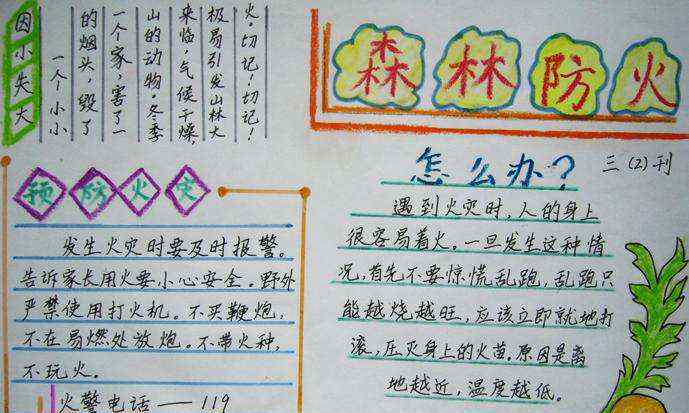 因小失大
一个小小
的烟头，毁了
一个家，害了一
山的动物。冬季
来临，气候干燥，
极易引发山林大
火。切记！切记！
森林防火
三（2）刊
预防火灾
发生火灾时要及时报警。
告诉家长用火要小心安全。野外
严禁使用打火机。不买鞭炮，
不在易燃处放炮。不带火种，
不玩火。
火警电话——119
怎么办？
遇到火灾时，人的身上
很容易着火。一旦发生这种情
况，首先不要惊慌乱跑，乱跑只
能越烧越旺，应该立即就地打
滚，压灭身上的火苗。原因是离
地越近，温度越低。